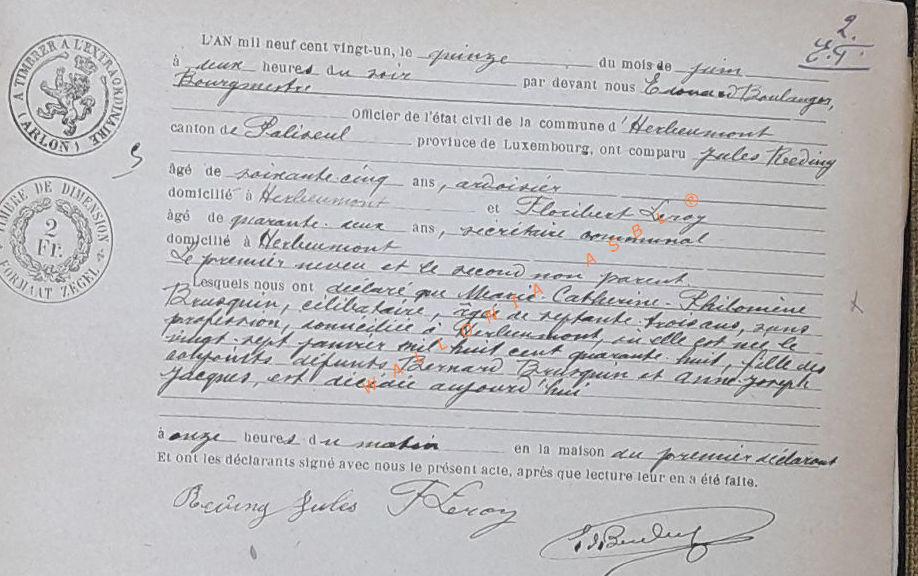 2.
E.G.
A TIMBRER A L'EXTRAORDINAIRE
(ARLON)
TIMBRE DE DIMENSION
2
Fr.
FORMAAT ZEGEL
L'AN mil neuf cent vingt-un, le quinze du mois de juin
à deux heures du soir par devant nous Edouard Boulanger,
Bourgmestre
Officier de l'état civil de la commune d'Herbeumont
canton de Paliseul province de Luxembourg, ont comparu Jules Reding
âgé de soixante-cinq ans, ardoisier
domicilié à Herbeumont et Floribert Leroy
âgé de quarante-deux ans, secrétaire communal
domicilié à Herbeumont
Le premier neveu et le second non parent.
Lesquels nous ont déclaré que Marie-Catherine-Philomène
Brusquin, célibataire, âgée de septante-trois ans, sans
profession, domiciliée à Herbeumont, où elle est née le
vingt-sept janvier mil huit cent quarante-huit, fille des
conjoints défunts Bernard Brusquin et Anne-Joseph
Jacques, est décédée aujourd'hui
à onze heures du matin en la maison du premier déclarant
Et ont les déclarants signé avec nous le présent acte, après que lecture leur en a été faite.
Reding Jules F Leroy
WALLONIA ASBL ®